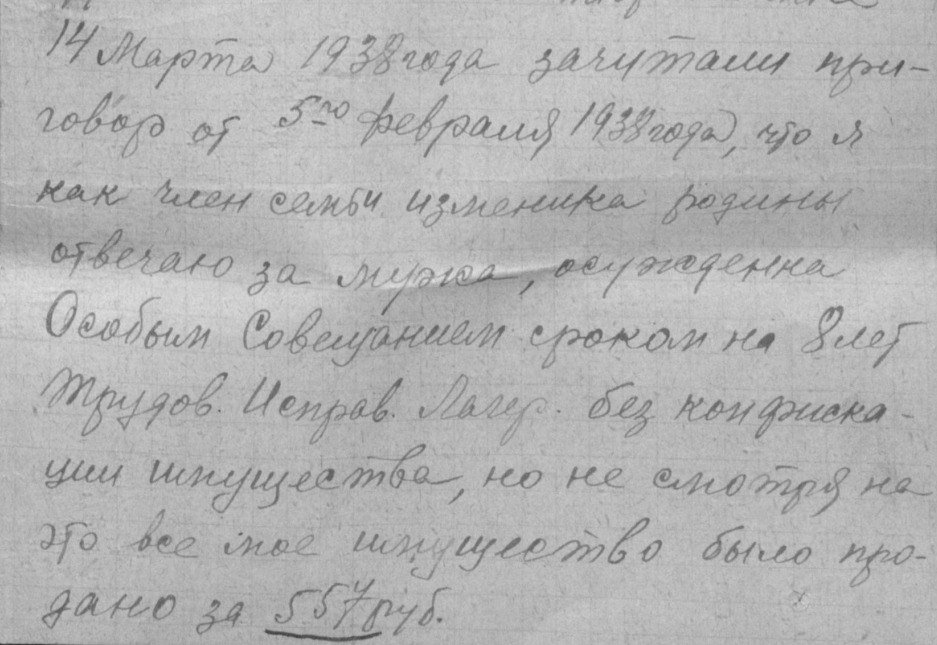 14 Марта 1938 года зачитали при-
говор от 5го февраля 1938 года, что я
как член семьи изменика родины
отвечаю за мужа, осужденна
Особым Совещанием сроком на 8 лет
Трудов. Исправ. Лагер. без конфиска-
ции имущества, но не смотря на
это все мое имущество было про-
дано за 557 руб.